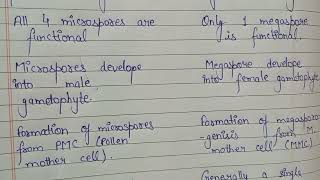 All 4 microspores are
functional
Microspores develope
into male
gametophyte.
Formation of microspores
from PMC (Pollen
mother cell).
Only 1 megaspore
is functional.
Megaspore develope
into female gametophyte
Formation of megaspor
-genisis from M.
mother cell (MMC)
Generally a single